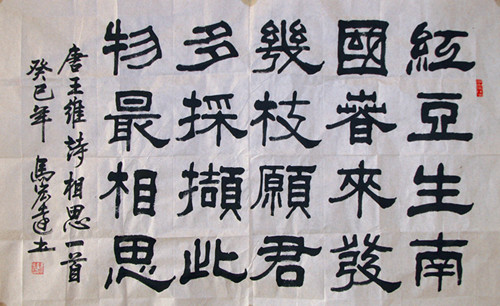 紅豆生南
國春來發
幾枝願君
多採擷此
物最相思
唐王維詩相思一首
癸巳年 馬宏達书